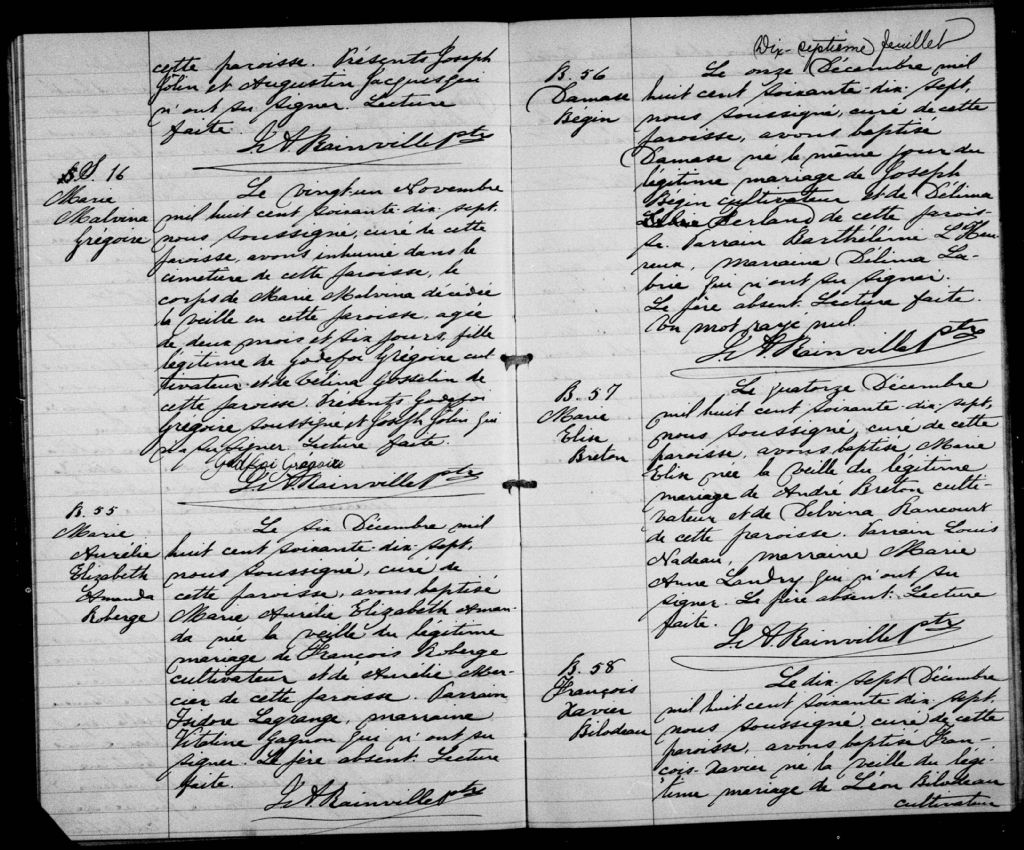 cette paroisse. Présents Joseph
Jolin et Augustin Jacques qui
n'ont su signer. Lecture
faite.
L. A. Rainville ptre
S. 16
Marie
Malvina
Grégoire
Le vingt-un Novembre
mil huit cent soixante-dix-sept,
nous soussigné, curé de cette
paroisse, avons inhumé dans le
cimetière de cette paroisse, le
corps de Marie Malvina décédée
la veille en cette paroisse, agée
de deux mois et six jours, fille
légitime de Godefoi Grégoire cul
tivateur et de Célina Gosselin de
cette paroisse. Présents Godefoi
Grégoire soussigné et Joseph Jolin qui
n'a su signer. Lecture faite.
Godfoi Grégoire
L. A. Rainville ptre
B. 55
Marie
Aurélie
Elizabeth
Amanda
Roberge
Le six Décembre mil
huit cent soixante-dix-sept,
nous soussigné, curé de
cette paroisse, avons baptisé
Marie Aurélie Elizabeth Aman-
da née la veille du légitime
mariage de François Roberge
cultivateur et de Aurélie Mer-
cier de cette paroisse. Parrain
Isidore Lagrange, marraine
Vitaline Gagnon qui n'ont su
signer. Le père absent. Lecture
faite.
L. A. Rainville ptre
Dix-septième feuillet
B. 56
Damase
Bégin
Le onze Décembre mil
huit cent soixante-dix-sept,
nous soussigné, curé de cette
paroisse, avons baptisé
Damase né le même jour du
légitime mariage de Joseph
Bégin cultivateur et de Délima
Ferland de cette parois-
se. Parrain Barthélémie L'Heu-
reux, marraine Délima La-
brie qui n'ont su signer.
Le père absent. Lecture faite.
Un mot rayé nul.
L. A. Rainville ptre
B. 57
Marie
Elise
Breton
Le quatorze Décembre
mil huit cent soixante-dix-sept,
nous soussigné, curé de cette
paroisse, avons baptisé, Marie
Elise née la veille du légitime
mariage de André Breton culti-
vateur et de Delvina Rancourt
de cette paroisse. Parrain Louis
Nadeau, marraine Marie
Anne Landry qui n'ont su
signer. Le père absent. Lecture
faite.
L. A. Rainville ptre
B. 58
François
Xavier
Bilodeau
Le dix-sept Décembre
mil huit cent soixante-dix-sept,
nous soussigné, curé de cette
paroisse, avons baptisé Fran-
çois-Xavier né la veille du légi-
time mariage de Léon Bilodeau
cultivateur